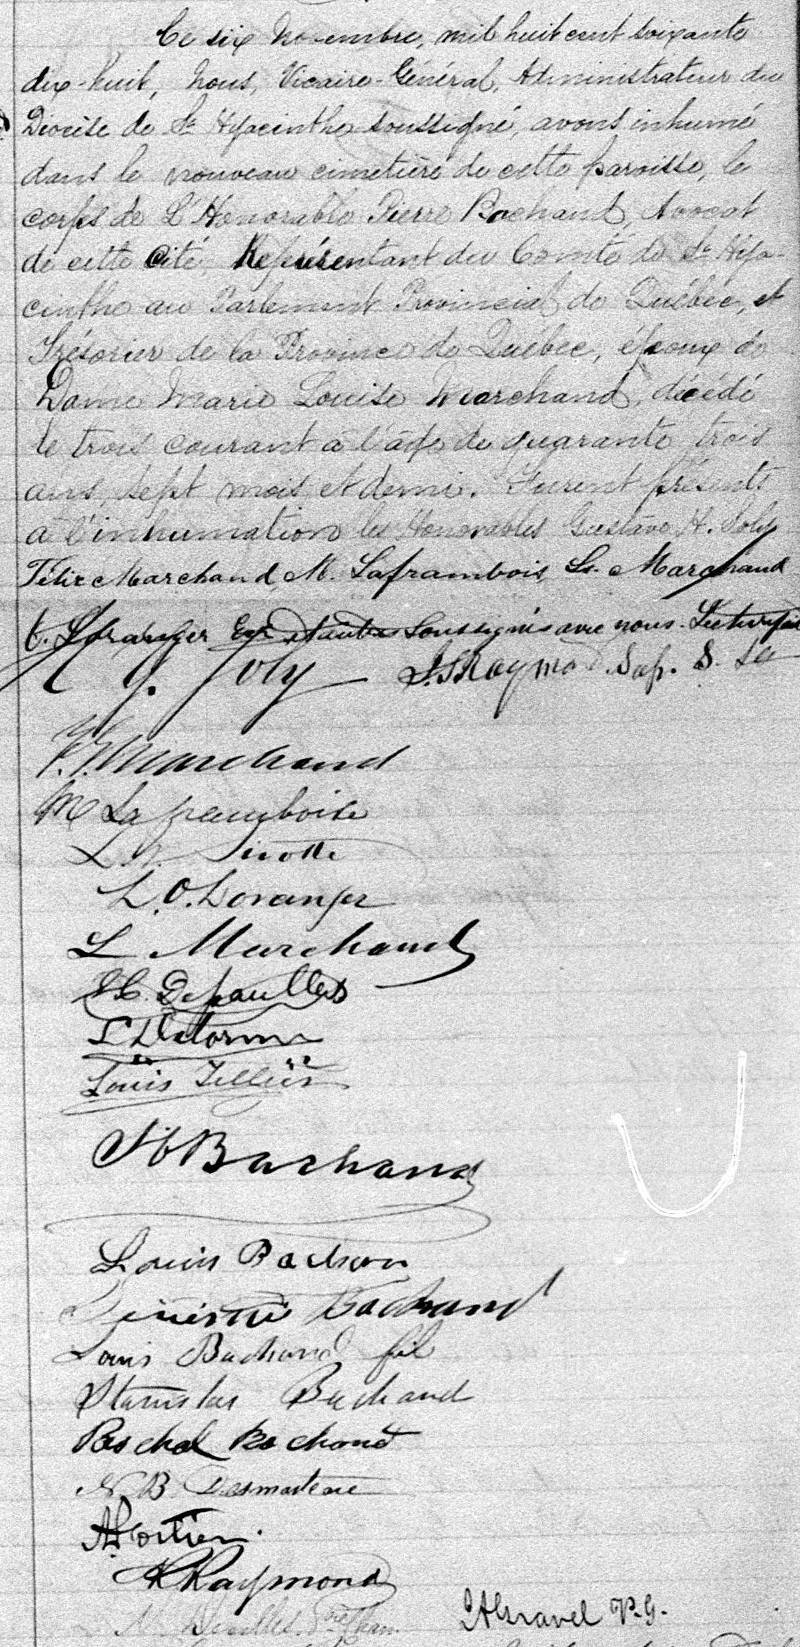 Ce six Novembre, mil huit cent soixante
dix-huit, Nous, Vicaire-Général, Administrateur du
Diocèse de St Hyacinthe soussigné, avons inhumé
dans le nouveau cimetière de cette paroisse, le
corps de L'Honorable Pierre Bachand, Avocat
de cette cité, Représentant du Comté de St Hya-
cinthe au Parlement Provincial de Québec, et
Trésorier de la Province de Québec, époux de
Dame Marie Louise Marchand, décédé
le trois courant à l'âge de quarante trois
ans, sept mois et demi. Furent présents
à l'inhumation les Honorables Gustave H. Joly
Félix Marchand, M. Laframboise, Ls. Marchand
Loranger Eyr et autres soussignés avec nous. Lecture faite
Joly J.S. Raymond Sup. S.
F.G. Marchand
M Laframboise
L. O. Loranger
L. Marchand
Dessaulles
L. Delorme
Louis Tellier
Bachand
Louis Bachand
Bachand
Louis Bachand fil
Stanislas Bachand
Paschal Bachand
N. B. Desmarteau
A. Fortier.
R Raymond
J A Gravel V.G.